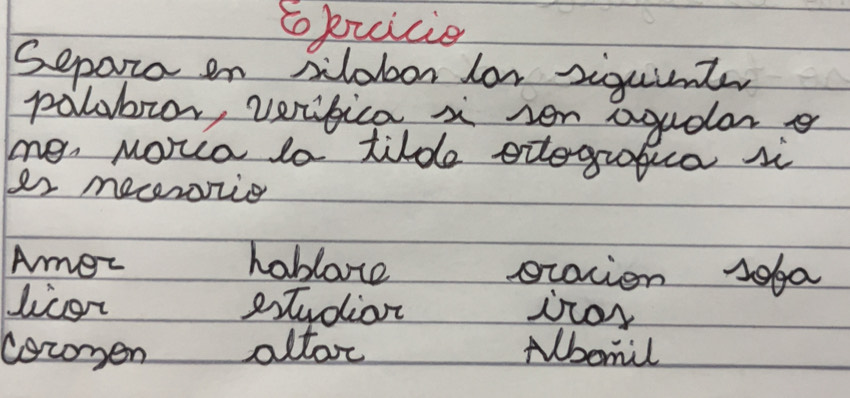 Ejercicio
Separa en silabas las siguientes
palabras, verifica si son agudas o
no. Marca la tilde ortografica si
es necesario
Amor hablare oracion sofa
licor estudiar iras
corazon altar Albañil